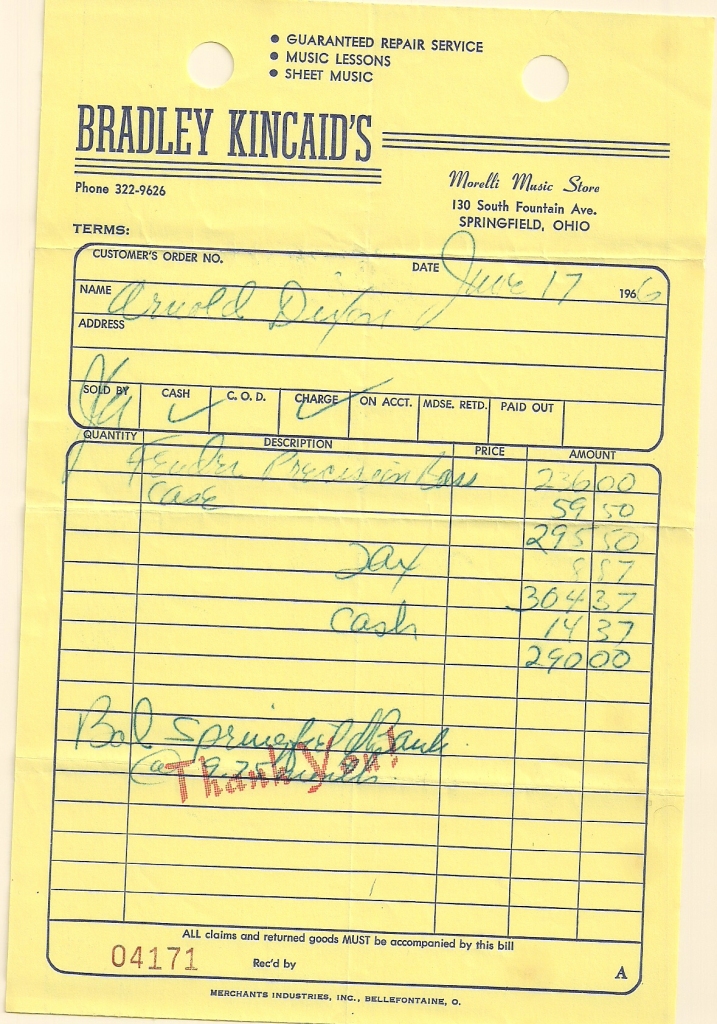 • GUARANTEED REPAIR SERVICE
• MUSIC LESSONS
• SHEET MUSIC
BRADLEY KINCAID'S
Phone 322-9626
Morelli Music Store
130 South Fountain Ave.
SPRINGFIELD, OHIO
TERMS:
CUSTOMER'S ORDER NO. DATE June 17 1966
NAME Arnold Dixon
ADDRESS
SOLD BY CASH ✓ C. O. D. CHARGE ✓ ON ACCT. MDSE. RETD. PAID OUT
QUANTITY DESCRIPTION PRICE AMOUNT
Fender Precision Bass 236 00
Case 59 50
295 50
Tax 8 87
304 37
Cash 14 37
290 00
Bal Springfield Bank
@ 9.25
Thank You!
ALL claims and returned goods MUST be accompanied by this bill
04171 Rec'd by A
MERCHANTS INDUSTRIES, INC., BELLEFONTAINE, O.